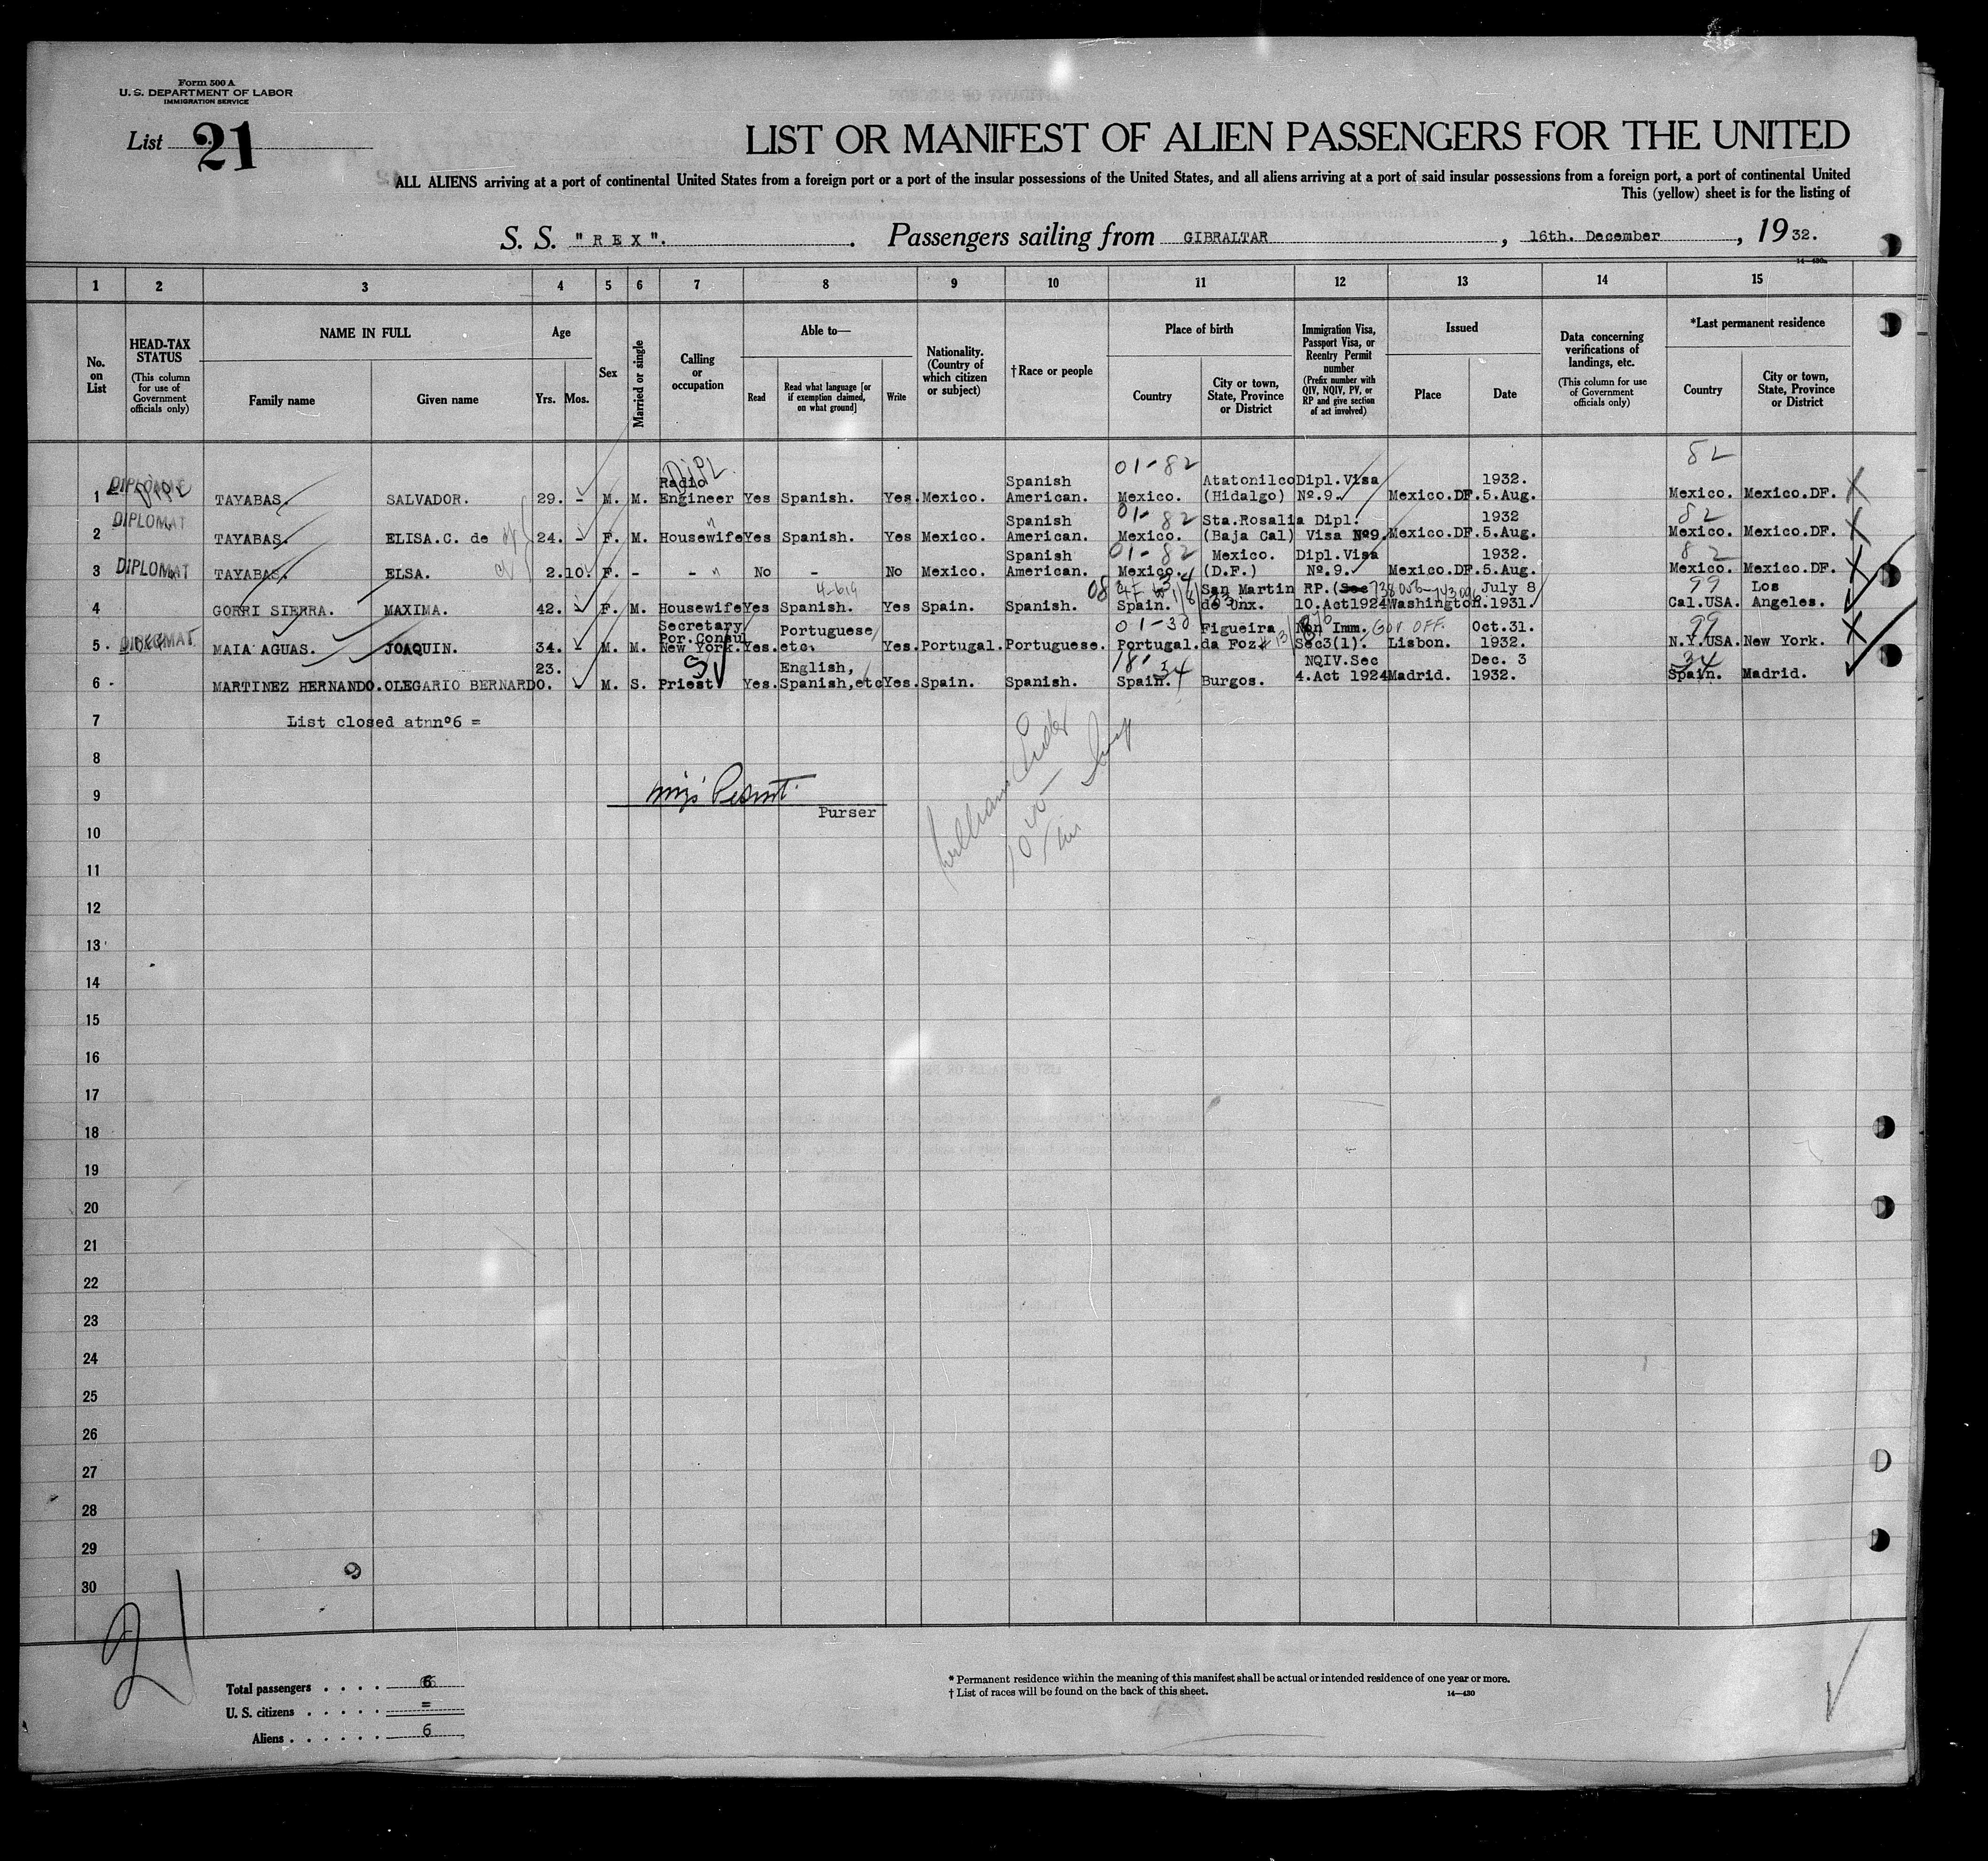 Form 500 A
U. S. DEPARTMENT OF LABOR
IMMIGRATION SERVICE
List 21
LIST OR MANIFEST OF ALIEN PASSENGERS FOR THE UNITED
ALL ALIENS arriving at a port of continental United States from a foreign port or a port of the insular possessions of the United States, and all aliens arriving at a port of said insular possessions from a foreign port, a port of continental United
This (yellow) sheet is for the listing of
S. S. "REX". Passengers sailing from GIBRALTAR, 16th. December, 1932.
14—430a
1 2 3 4 5 6 7 8 9 10 11 12 13 14 15
No. on List
HEAD-TAX STATUS (This column for use of Government officials only)
NAME IN FULL Family name Given name
Age Yrs. Mos.
Sex
Married or single
Calling or occupation
Able to— Read Read what language [or if exemption claimed, on what ground] Write
Nationality. (Country of which citizen or subject)
†Race or people
Place of birth Country City or town, State, Province or District
Immigration Visa, Passport Visa, or Reentry Permit number (Prefix number with QIV, NQIV, PV, or RP and give section of act involved)
Issued Place Date
Data concerning verifications of landings, etc. (This column for use of Government officials only)
*Last permanent residence Country City or town, State, Province or District
1 DIPLOMAT DIPL TAYABAS. SALVADOR. 29. - M. M. DIPL. Radio Engineer Yes Spanish. Yes. Mexico. Spanish American. 01-82 Mexico. Atatonilco (Hidalgo) Dipl.Visa Nº.9. Mexico.DF. 1932. 5.Aug. 82 Mexico. Mexico.DF.
2 DIPLOMAT TAYABAS. ELISA.C. de 24. - F. M. Housewife Yes Spanish. Yes Mexico. Spanish American. 01-82 Mexico. Sta.Rosalia (Baja Cal) Dipl. Visa Nº9. Mexico.DF. 1932 5.Aug. 82 Mexico. Mexico.DF.
3 DIPLOMAT TAYABAS. ELSA. 2. 10. F. - - No - No Mexico. Spanish American. 01-82 Mexico. Mexico. (D.F.) Dipl.Visa Nº.9. Mexico.DF. 1932. 5.Aug. 82 Mexico. Mexico.DF.
4 GORRI SIERRA. MAXIMA. 42. - F. M. Housewife Yes Spanish. Yes Spain. Spanish. Spain. San Martin de Unx. RP.(Sec 10.Act1924 Washington. July 8 1931. 99 Cal.USA. Los Angeles.
5 DIPLOMAT MAIA AGUAS. JOAQUIN. 34. - M. M. Secretary Por.Consul New York. Yes. Portuguese etc. Yes. Portugal. Portuguese. 01-30 Portugal. Figueira da Foz. Non Imm. Sec3(1). GOV OFF. Lisbon. Oct.31. 1932. 99 N.Y.USA. New York.
6 MARTINEZ HERNANDO. OLEGARIO BERNARDO. 23. M. S. Priest Yes. English, Spanish,etc Yes. Spain. Spanish. Spain. Burgos. NQIV.Sec 4.Act 1924 Madrid. Dec. 3 1932. 34 Spain. Madrid.
7 List closed atnnº6 =
8
9
Purser
10
11
12
13
14
15
16
17
18
19
20
21
22
23
24
25
26
27
28
29
30
21
Total passengers . . . . 6
U. S. citizens . . . . . =
Aliens . . . . . . 6
* Permanent residence within the meaning of this manifest shall be actual or intended residence of one year or more.
† List of races will be found on the back of this sheet.
14—430